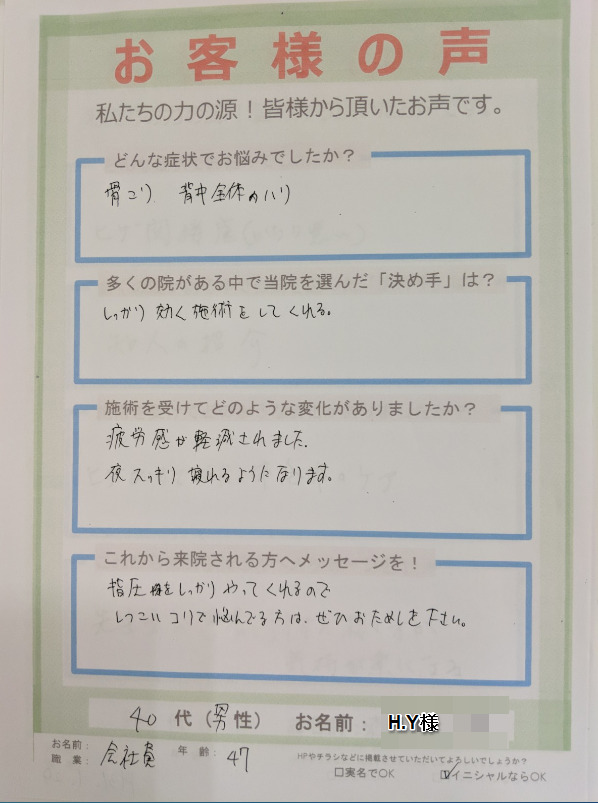 お客様の声
私たちの力の源！皆様から頂いたお声です。
どんな症状でお悩みでしたか？
肩こり 背中全体のハリ
多くの院がある中で当院を選んだ「決め手」は？
しっかり効く施術をしてくれる。
施術を受けてどのような変化がありましたか？
疲労感が軽減されました。
夜スッキリ寝れるようになります。
これから来院される方へメッセージを！
指圧をしっかりやってくれるので
しつこいコリで悩んでる方は、ぜひおためし下さい。
40代（男性） お名前： H.Y様
お名前：
職業： 会社員 年齢： 47
HPやチラシなどに掲載させていただいてよろしいでしょうか？
□実名でOK ☑イニシャルならOK